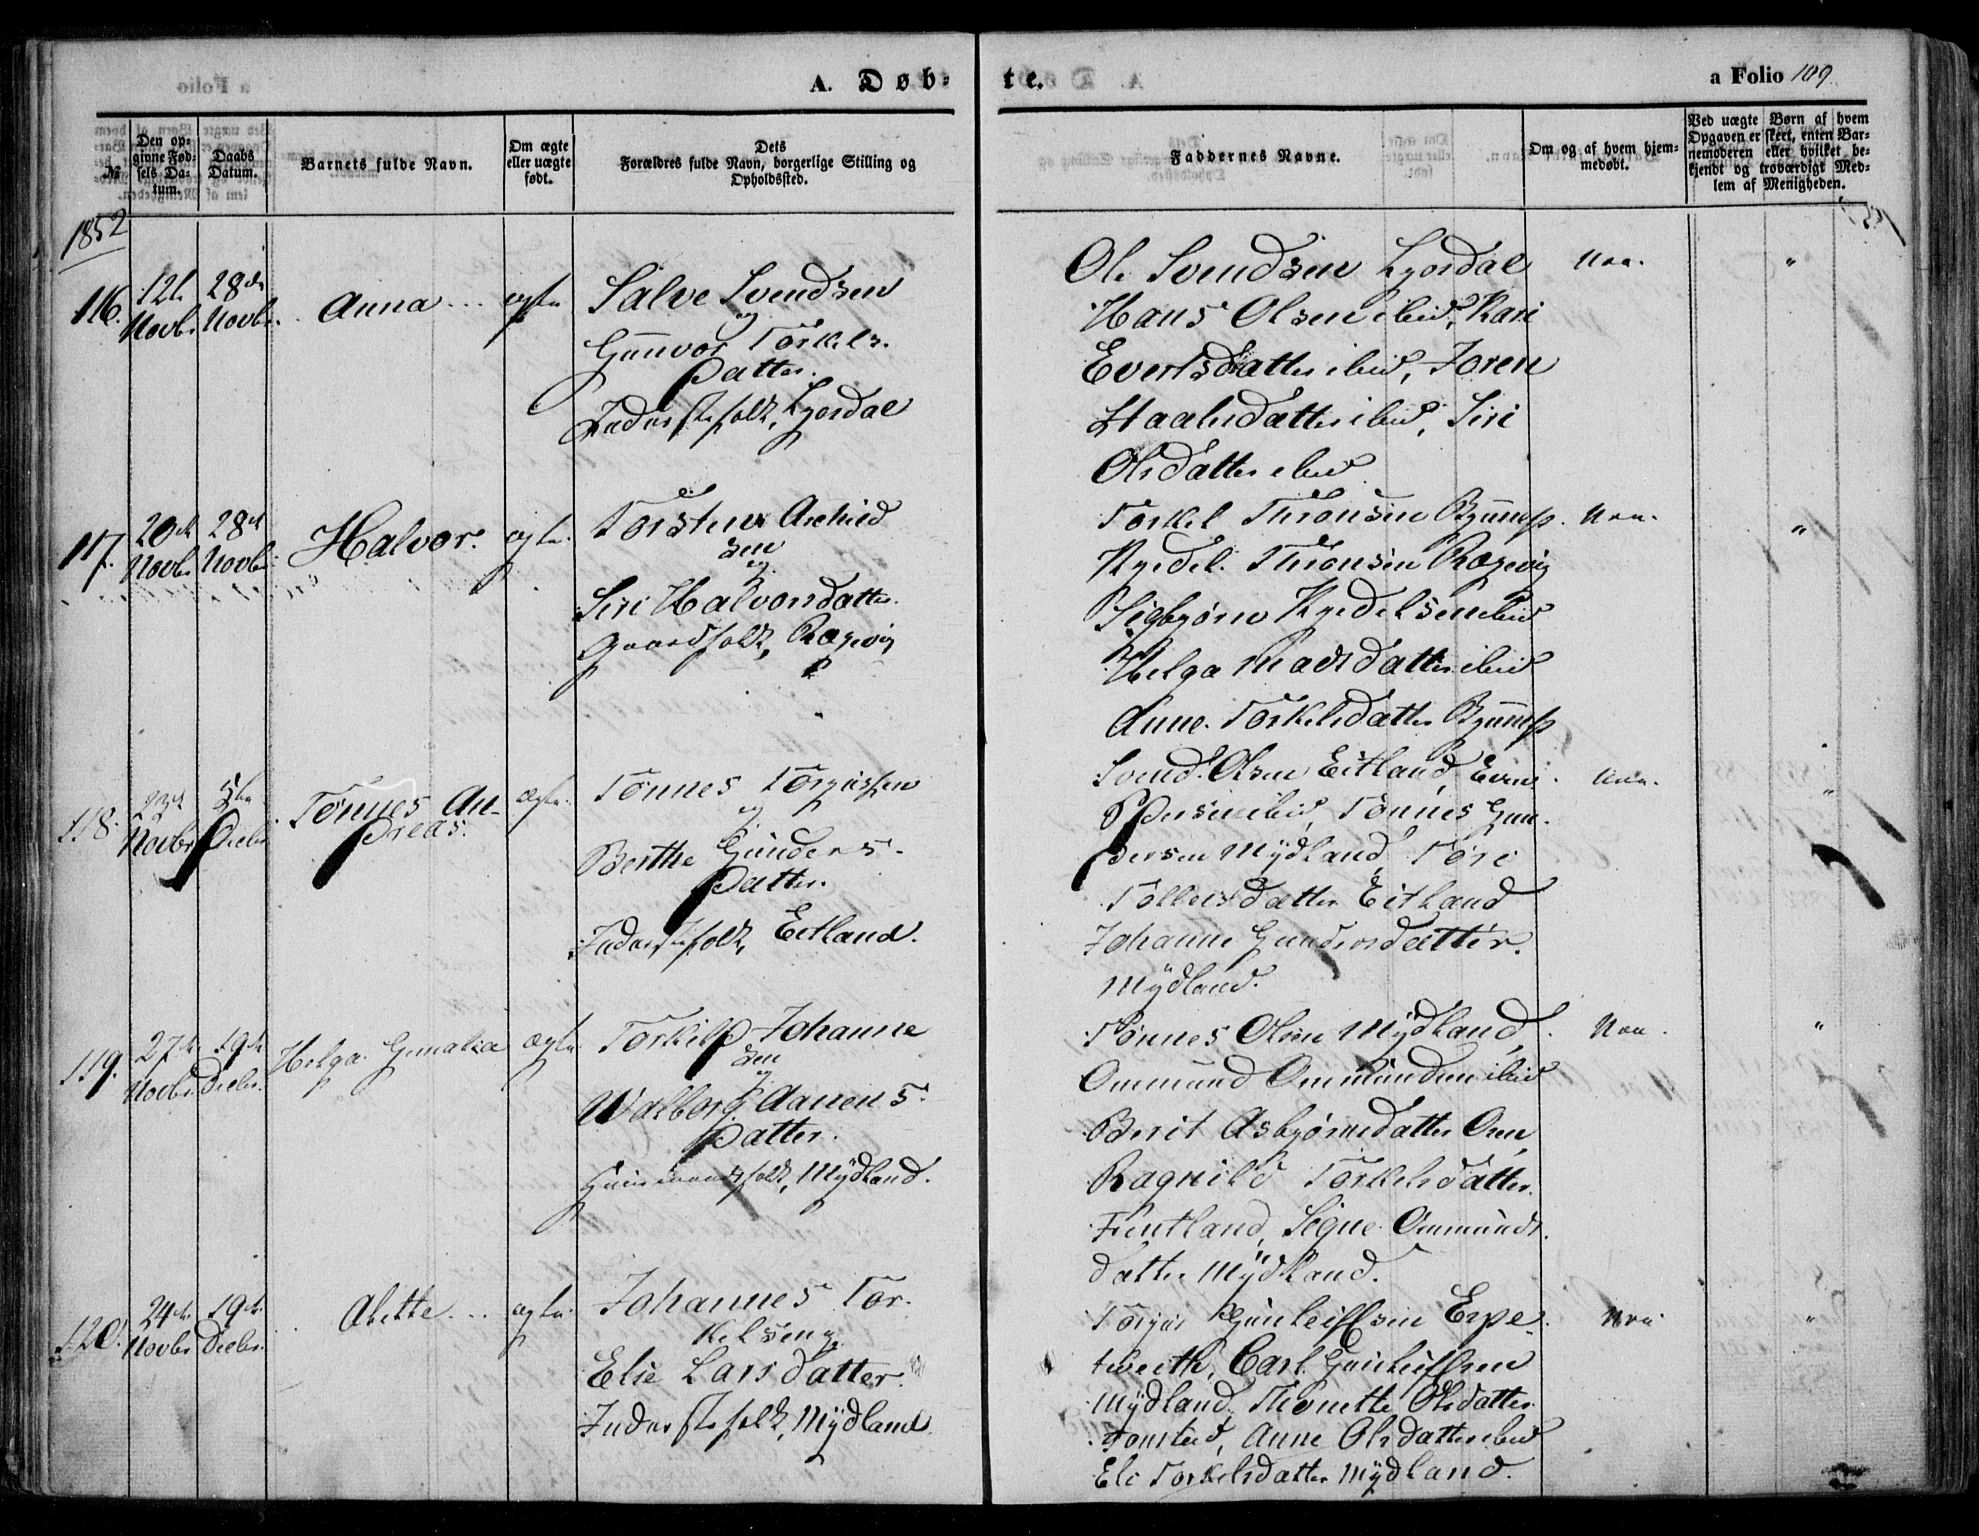 A. Døb-
te.
a Folio 109.
№
Den opgivne Fødsels Datum.
Daabs Datum.
Barnets fulde Navn.
Om ægte eller uægte født.
Dets Forældres fulde Navn, borgerlige Stilling og Opholdssted.
Faddernes Navne.
Om og af hvem hjemmedøbt.
Ved uægte Børn af hvem Opgaven er skeet, enten Barnemoderen eller hvilket bekjendt og troværdigt Medlem af Menigheden.
1852
116.
12te Novbr
28de Novbr.
Anna
ægte
Salve Svendsen
og
Gunvor Torkels-
Datter.
Inderstefolk, Lyordal
Ole Svendsen Lyordal
Hans Olsen ibid, Kari
Evertsdatter ibid, Joren
Haalisdatter ibid, Siri
Olsdatter ibid
117.
20de Novbr
28de Novbr
Halvor.
ægte.
Torsten Aschild
sen
og
Siri Halvorsdatter.
Gaardfolk, Rægevig
Torkel Thronsen
Kjedel Thronsen Rægevig
Sigbjørn Kjedelsen ibid
Helga Madsdatter ibid
Anne Torkelsdatter
118.
23de Novbr
5te Decbr
Tønnes An-
dreas.
ægte.
Tønnes Torgussen
og
Berthe Gunders-
Datter.
Inderstefolk, Eitland.
Svend Olsen Eitland,
Pedersen ibid, Tønnes Gun-
dersen Mydland, Tøre
Tollefsdatter Eitland
Johanne Gundersdatter.
Mydland.
119.
27de Novbr
19de Decbr.
Helga
ægte
Torkild Johanne
sen
og
Walborg Aanens-
Datter.
Huusmandsfolk, Mydland.
Tønnes Olsen Mydland,
Ommund Ommundsen ibid
Berit Asbjørnsdatter Oren
Ragnild Torkelsdatter
Fintland, Signe Ommunds-
datter Mydland.
120.
24de Novbr
19de Decbr.
Alette
ægte.
Johannes Tor-
kelsen og
Else Larsdatter.
Inderstefolk, Mydland
Torjus Gunleiffsen Erpe-
tveith, Carl Gunleiffsen
Mydland, Thonette Olsdatter
Tonstad, Anne Olsdatter ibid
Eli Torkelsdatter Mydland.